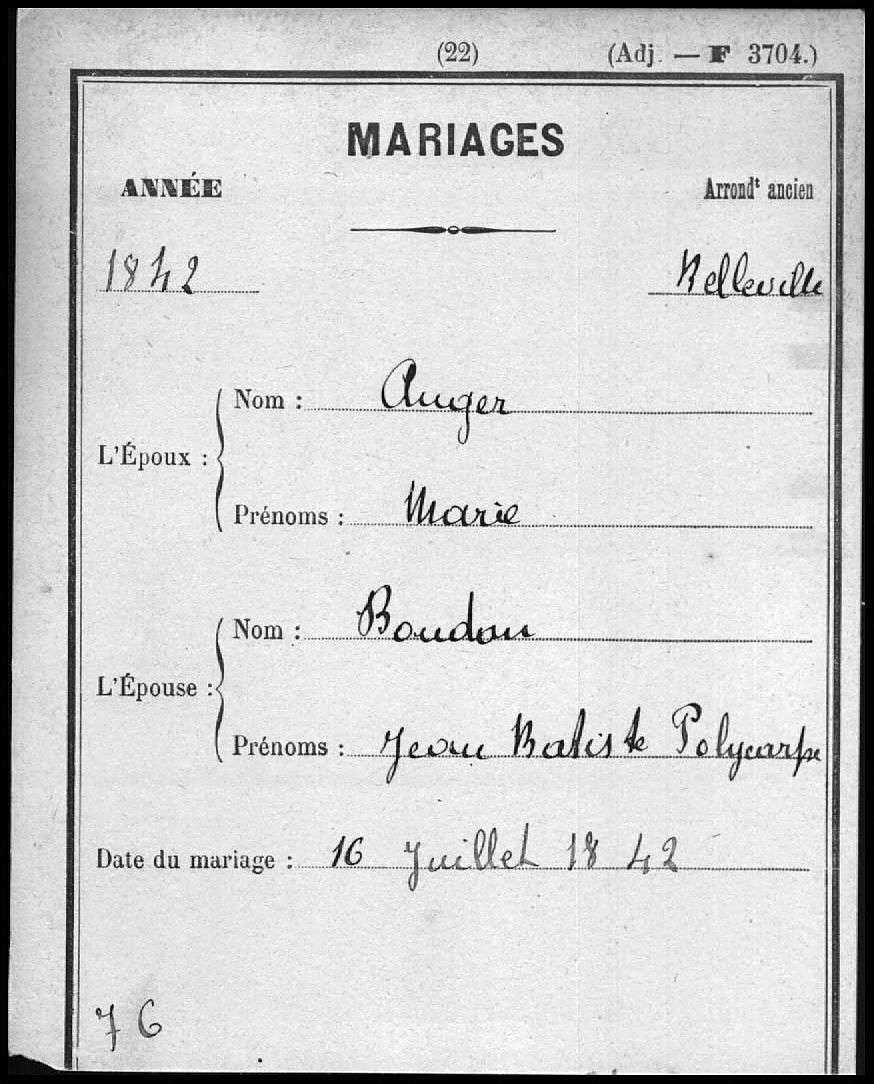 (22) (Adj. — F 3704.)
MARIAGES
ANNÉE Arrondt ancien
1842 Belleville
L'Époux :
Nom : Auger
Prénoms : Marie
L'Épouse :
Nom : Boudou
Prénoms : Jean Batiste Polycarpe
Date du mariage : 16 Juillet 1842
76